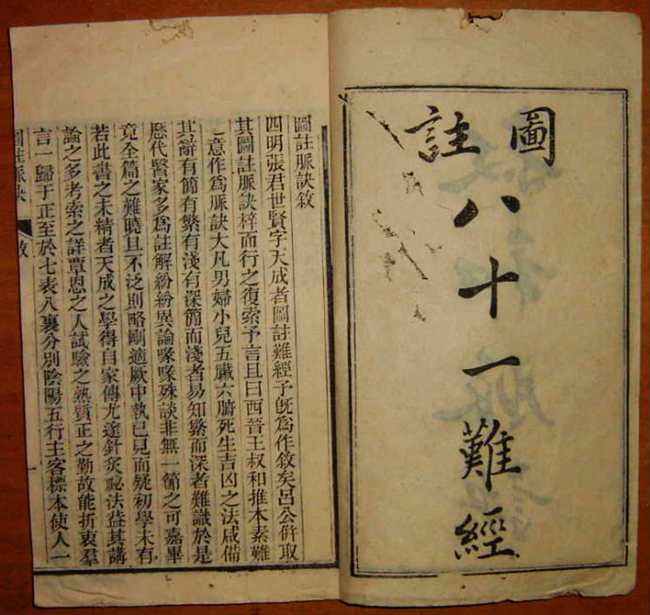 圖註
八十一難經
圖註脈訣敘
四明張君世賢字天成者圖註難經予旣爲作敘矣呂公倂取
其圖註脈訣梓而行之復索予言且曰西晉王叔和推本素難
意作爲脈訣大凡男婦小兒五臟六腑死生吉凶之法咸備
其辭有簡有繁有淺有深簡而淺者易知繁而深者難識於是
歷代醫家多爲註解紛紛異論喙喙殊談非無一節之可嘉畢
竟全篇之難曉且不泛則略剛適厥中執已見而疑初學未有
若此書之未精者天成之學得自家傳尤邃針灸祕法益其講
論之多考索之詳覃思之人試驗之熟質正之勤故能折衷羣
言一歸于正至於七表八裏分別陰陽五行主客標本使人一
圖註脈訣 敘 一